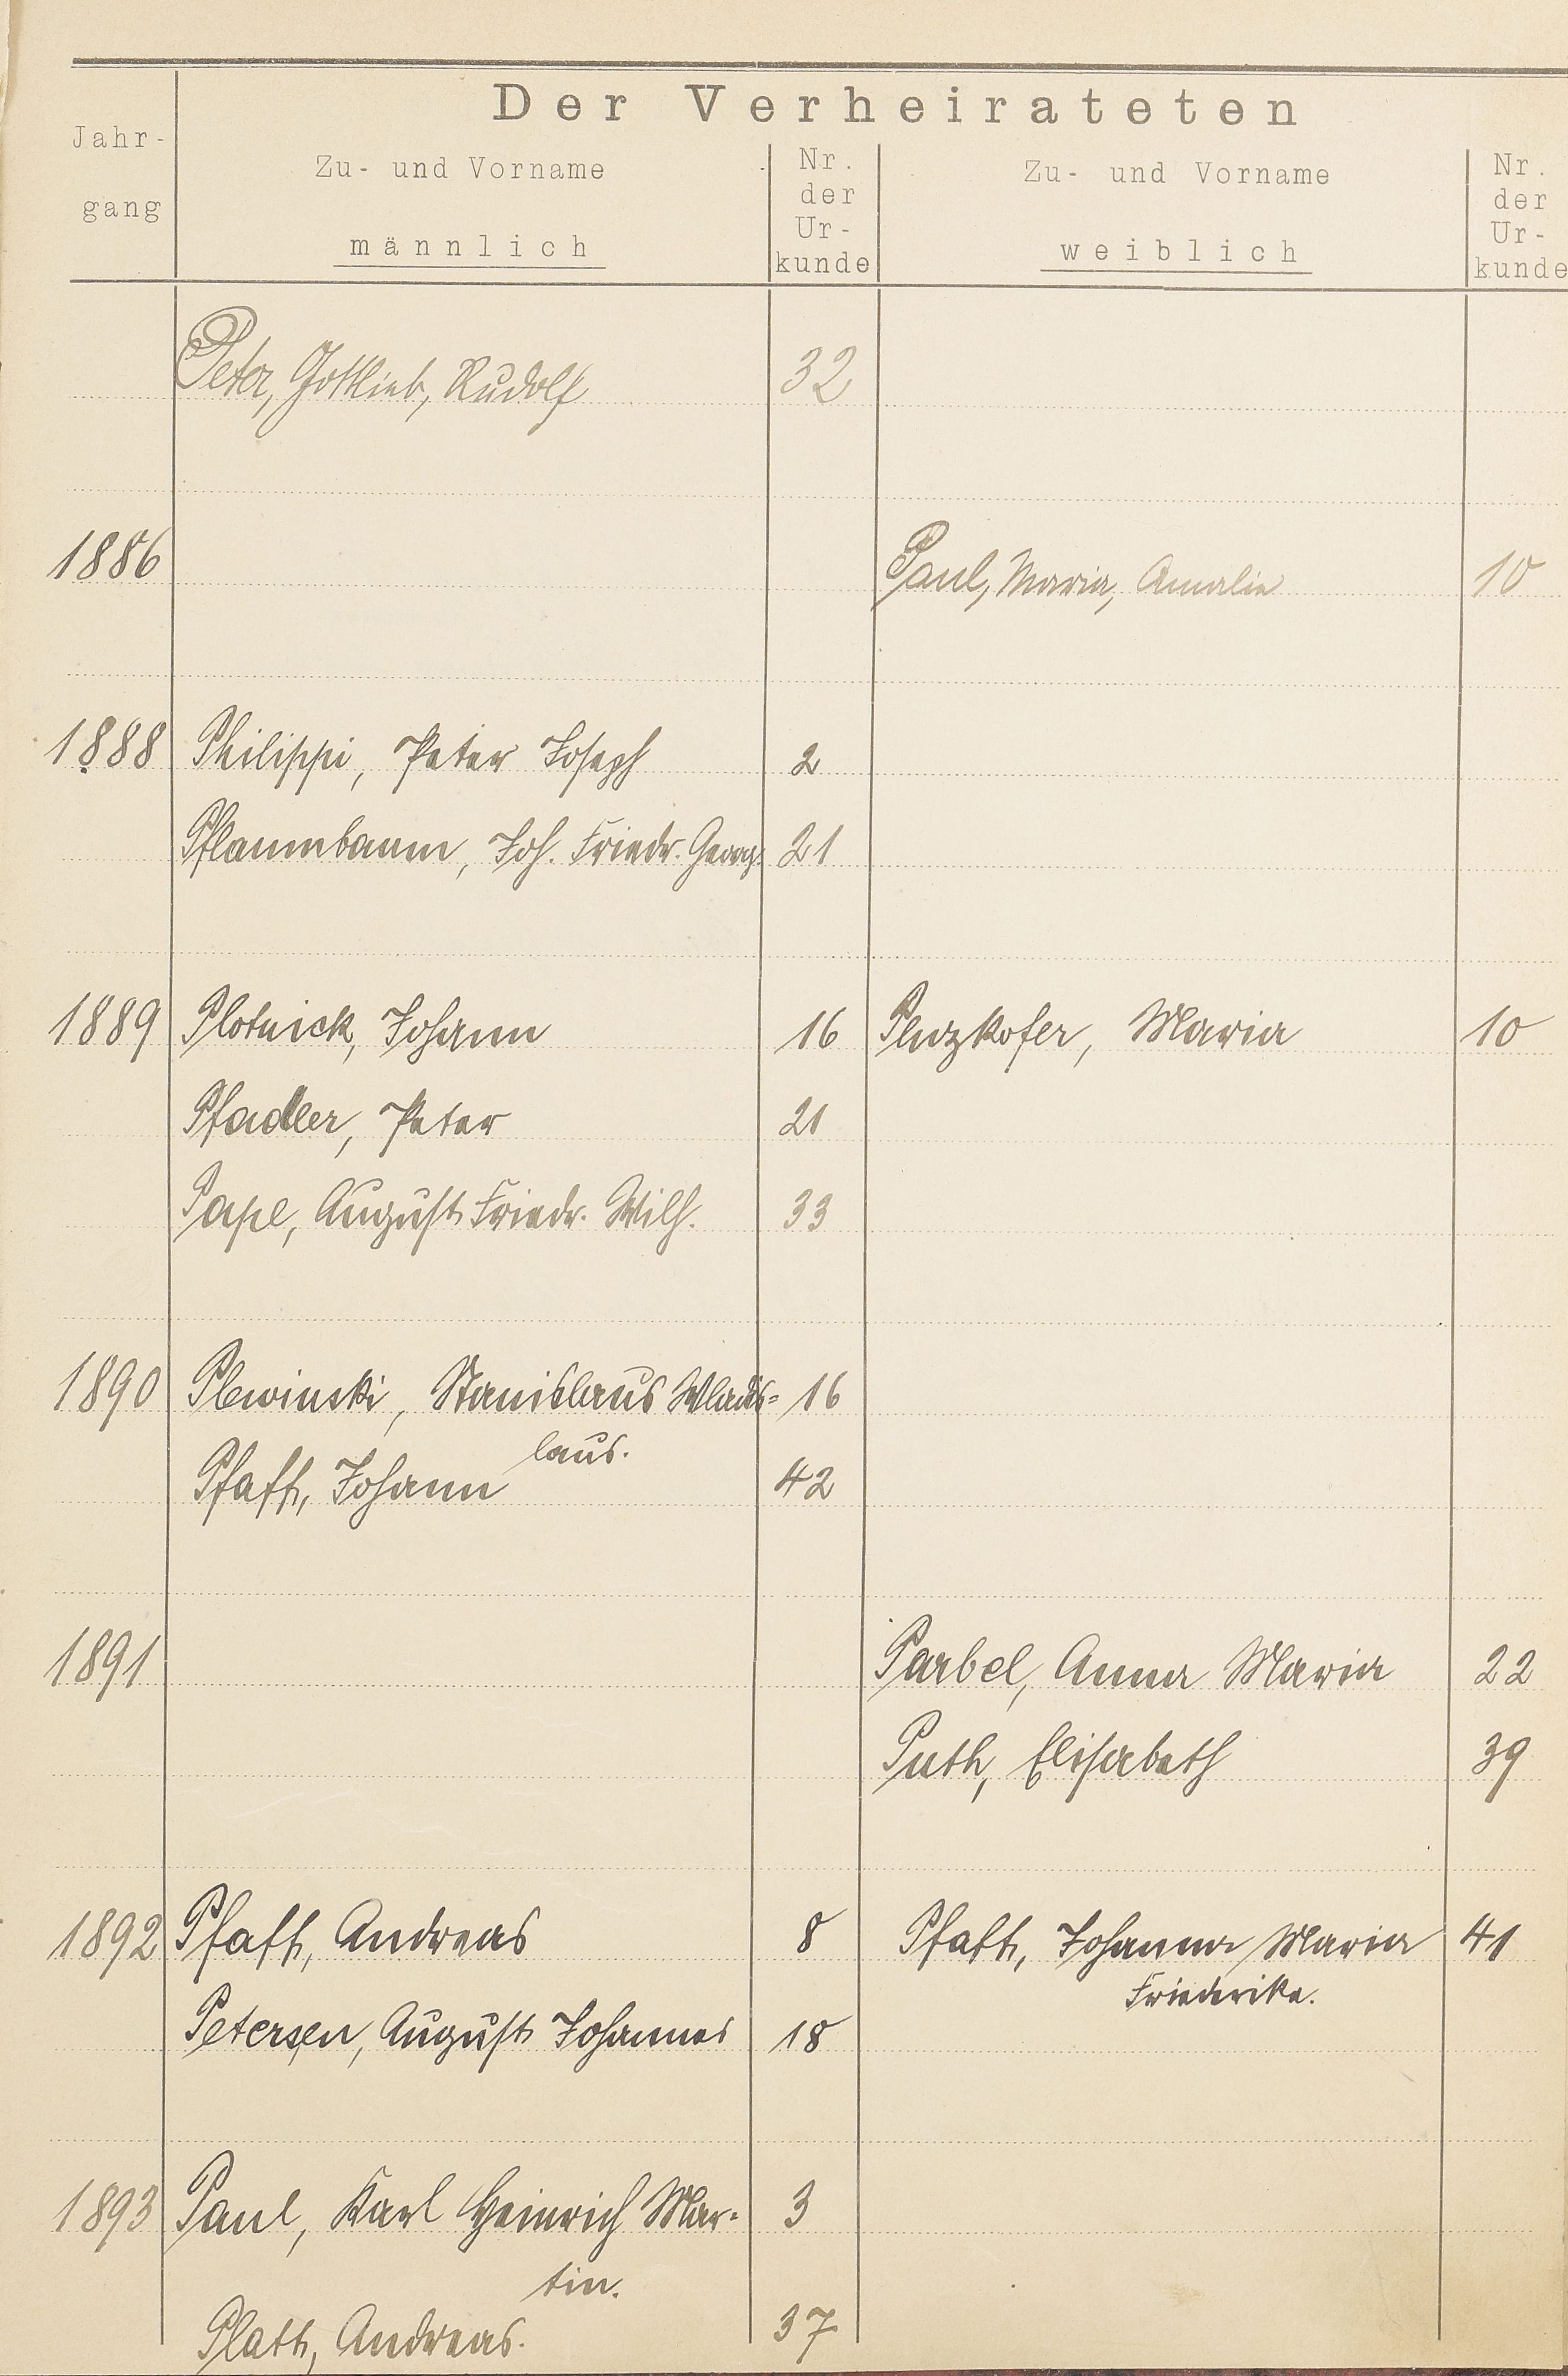 Der Verheirateten
Jahr-
gang
Zu- und Vorname
männlich
Nr.
der
Ur-
kunde
Zu- und Vorname
weiblich
Nr.
der
Ur-
kunde
Peter, Gottlieb, Rudolf 32
1886 Paul, Maria, Amalie 10
1888 Philippi, Peter Joseph 2
Pflaumbaum, Joh. Friedr. Georg. 21
1889 Plotnick, Johann 16 Penzkofer, Maria 10
Pfadler, Peter 21
Pape, August Friedr. Wilh. 33
1890 Plewinski, Stanislaus Wladis= 16
laus.
Pfaff, Johann 42
1891 Parbel, Anna Maria 22
Puth, Elisabeth 39
1892 Pfaff, Andreas 8 Pfaff, Johanna Maria 41
Friederike.
Petersen, August Johannes 18
1893 Paul, Karl Heinrich Mar- 3
tin.
Platt, Andreas. 37